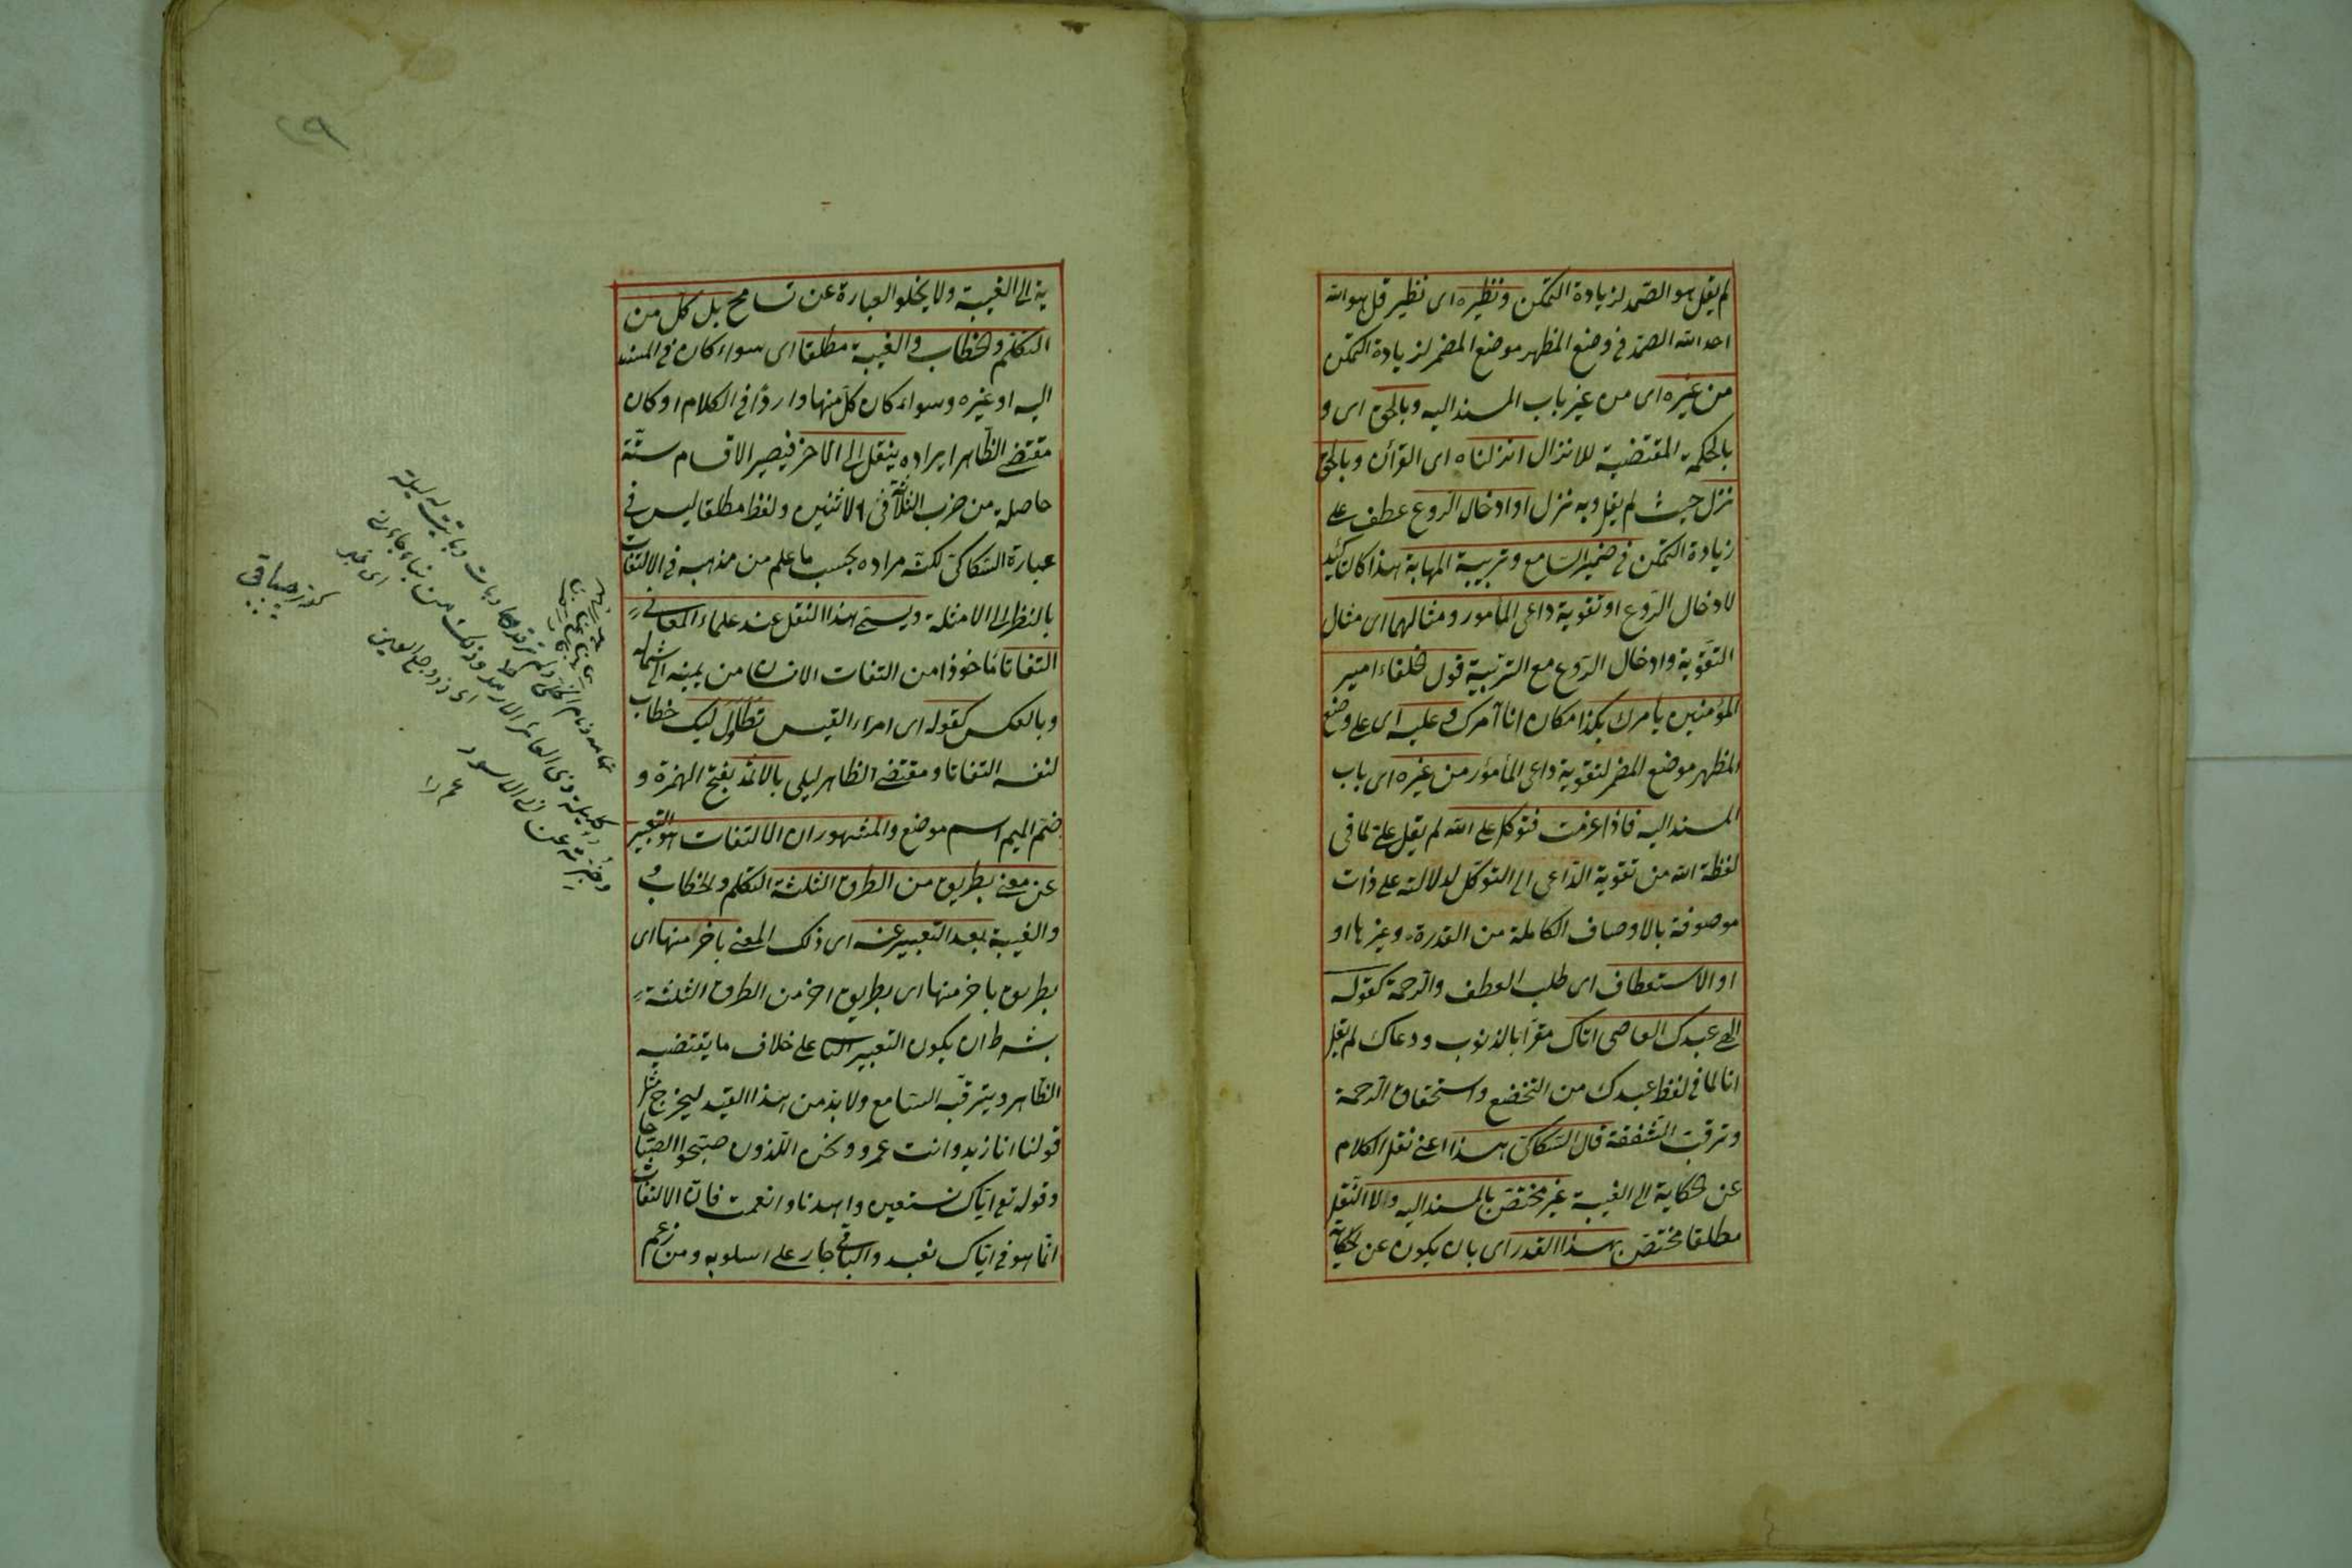 لم يقل هو الصمد لزيادة التمكن ونظيره اى نظير قل هو الله
احد الله الصمد فى وضع المظهر موضع المضمر لزيادة التمكن
من غيره اى من غير باب المسند اليه وبالحق اى و
بالحكمة المقتضية للانزال انزلناه اى القرآن وبالحق
نزل حيث لم يقل وبه نزل او ادخال الروع عطف على
زيادة التمكن فى ضمير السامع وتربية المهابة هذا كالتأكيد
لادخال الروع او تقوية داعى المأمور ومثالهما اى مثال
التقوية وادخال الروع مع التربية قول الخلفاء امير
المؤمنين يأمرك بكذا مكان انا آمرك وعليه اى على وضع
المظهر موضع المضمر لتقوية داعى المأمور من غيره اى باب
المسند اليه فاذا عزمت فتوكل على الله لم يقل على لما فى
لفظة الله من تقوية الداعى الى التوكل لدلالته على ذات
موصوفة بالاوصاف الكاملة من القدرة وغيرها او
او الاستعطاف اى طلب العطف والرحمة كقوله
الهى عبدك العاصى اتاك مقرا بالذنوب ودعاك لم يقل
انا لما فى لفظ عبدك من التخضع واستحقاق الرحمة
وترقب الشفقة قال السكاكى هذا اعنى نقل الكلام
عن الحكاية الى الغيبة غير مختص بالمسند اليه ولا النقل
مطلقا مختص بهذا القدر اى بان يكون عن الحكاية
ية الى الغيبة ولا يخلو العبارة عن تسامح بل كل من
التكلم والخطاب والغيبة مطلقا اى سواء كان فى المسند
اليه او غيره وسواء كان كل منها واردا فى الكلام او كان
مقتضى الظاهر ايراده ينقل الى الآخر فيصير الاقسام ستة
حاصلة من ضرب الثلاثة فى الاثنين ولفظ مطلقا ليس فى
عبارة السكاكى لكنه مراده بحسب ما علم من مذهبه فى الالتفات
بالنظر الى الامثلة ويسمى هذا النقل عند علماء المعانى
التفاتا مأخوذا من التفات الانسان من يمينه الى شماله
وبالعكس كقوله اى امراء القيس تطاول ليلك خطاب
لنفسه التفاتا ومقتضى الظاهر ليلى بالاثمد بفتح الهمزة و
ضم الميم اسم موضع والمشهور ان الالتفات هو التعبير
عن معنى بطريق من الطرق الثلثة التكلم والخطاب و
والغيبة بعد التعبير عنه اى ذلك المعنى بآخر منها اى
بطريق باخر منها اى بطريق اخر من الطرق الثلثة
بشرط ان يكون التعبير الثانى على خلاف ما يقتضيه
الظاهر ويترقبه السامع ولا بد من هذا القيد ليخرج مثل
قولنا انا زيد وانت عمرو ونحن اللذون صبحوا الصباحا
وقوله تع اياك نستعين واهدنا وانعمت فان الالتفات
انما هو فى اياك نعبد والباقى جار على اسلوبه ومن زعم
تمامه ونام الخلى ولم ترقد وبات وباتت له ليلة
كليلة ذى العائر الارمد وذلك من نباء جاءنى
وخبرته عن ابى الاسود
اى خبر
٢٩